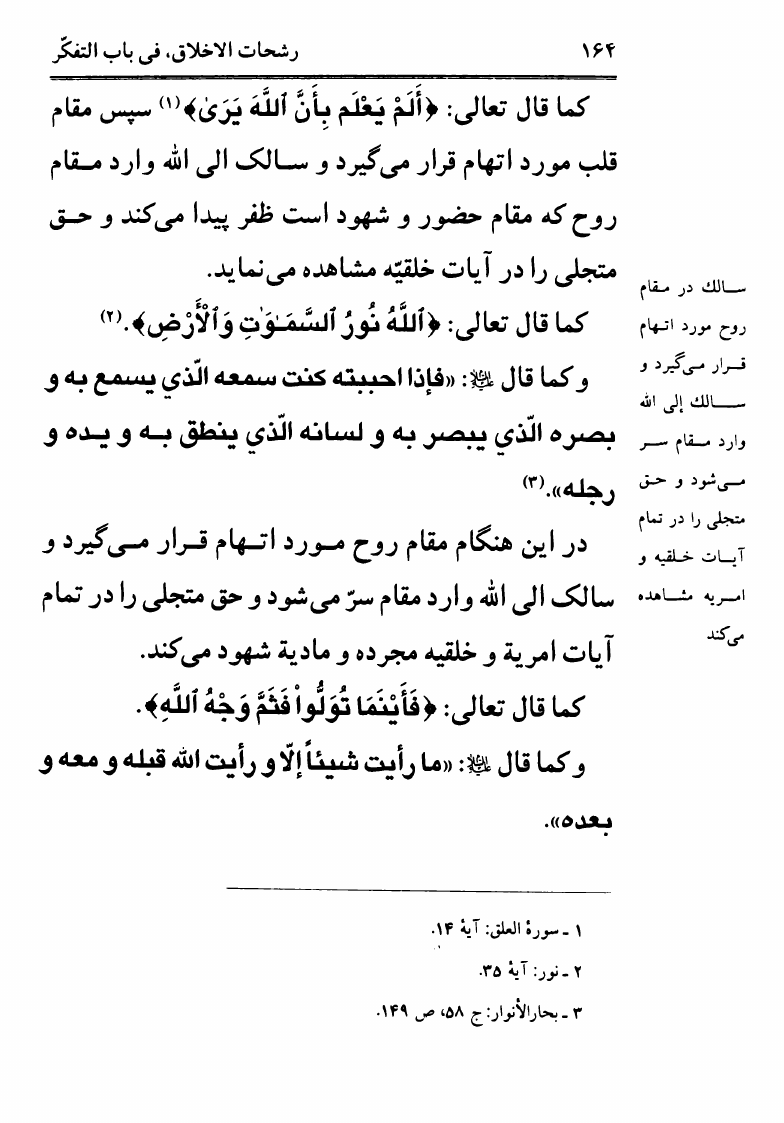 ۱۶۴ رشحات الاخلاق، فی باب التفکّر
کما قال تعالی: ﴿أَلَمْ یَعْلَم بِأَنَّ ٱللَّهَ یَرَیٰ﴾(۱) سپس مقام
قلب مورد اتهام قرار می‌گیرد و سـالک الی الله وارد مـقام
روح که مقام حضور و شهود است ظفر پیدا می‌کند و حـق
متجلی را در آیات خلقیّه مشاهده می‌نماید.
کما قال تعالی: ﴿ٱللَّهُ نُورُ ٱلسَّمَـٰوَٰتِ وَٱلْأَرْضِ﴾.(۲)
و کما قال علیه السلام: «فإذا احببته کنت سمعه الّذي یسمع به و
بصره الّذي یبصر به و لسانه الّذي ینطق بـه و یـده و
رجله».(۳)
در این هنگام مقام روح مـورد اتـهام قـرار مـی‌گیرد و
سالک الی الله وارد مقام سرّ می‌شود و حق متجلی را در تمام
آیات امریة و خلقیه مجرده و مادیة شهود می‌کند.
کما قال تعالی: ﴿فَأَیْنَمَا تُوَلُّوا۟ فَثَمَّ وَجْهُ ٱللَّهِ﴾.
و کما قال علیه السلام: «ما رأیت شیئاً إلّا و رأیت الله قبله و معه و
بعده».
سـالك در مـقام
روح مورد اتـهام
قـرار مـی‌گیرد و
سـالك إلی الله
وارد مـقام سـر
مـی‌شود و حـق
متجلی را در تمام
آیـات خـلقیه و
امـریه مشـاهده
می‌کند
۱ ـ سورۀ العلق: آیۀ ۱۴.
۲ ـ نور: آیۀ ۳۵.
۳ ـ بحارالأنوار: ج ۵۸، ص ۱۴۹.